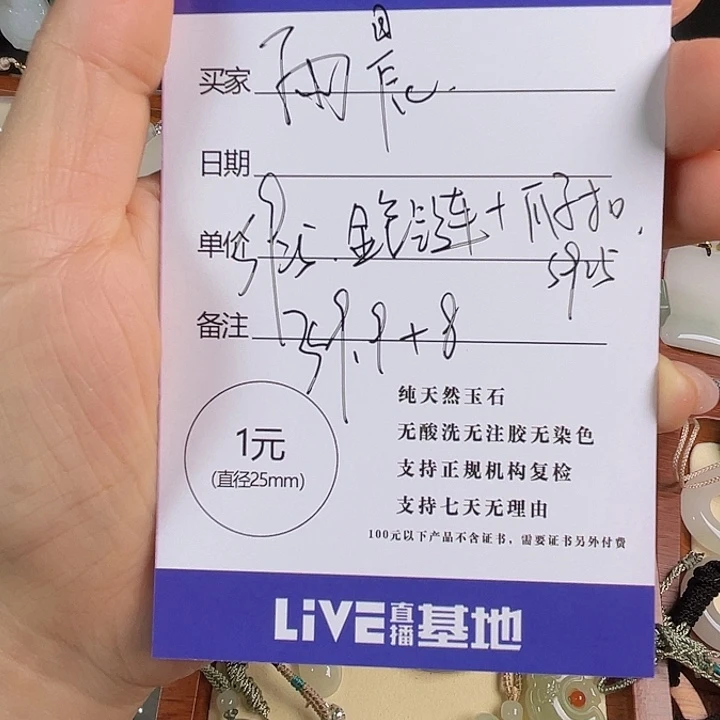 买家 雨晨
日期
单价 5925. 金包链车+爪子扣.
5925
备注 259.9+8
1元
(直径25mm)
纯天然玉石
无酸洗无注胶无染色
支持正规机构复检
支持七天无理由
100元以下产品不含证书,需要证书另外付费
LiVE直播基地